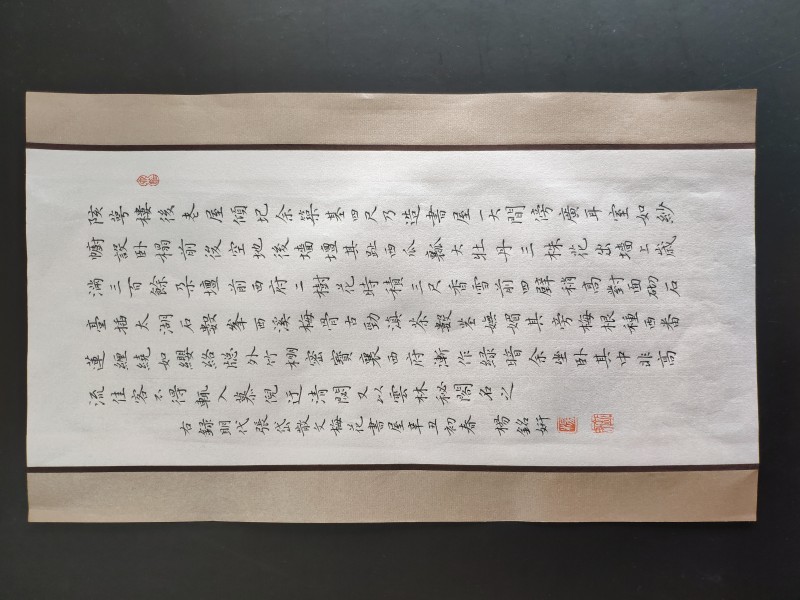 陔萼樓後老屋傾圮余築基四尺乃造書屋一大間傍廣耳室如紗
幮設卧榻前後空地後墻壇其趾西瓜瓤大牡丹三株花出墻上歲
滿三百餘朵壇前西府二樹花時積三尺香雪前四壁稍高對面砌石
臺插太湖石數峯西溪梅骨古勁滇茶數莖嫵媚其旁梅根種西番
蓮纏繞如纓絡牕外竹棚密寶襄西府漸作綠暗余坐卧其中非高
流佳客不得輒入慕倪迂清閟又以雲林秘閣名之
右錄明代張岱散文梅花書屋辛丑初春 楊銘妍